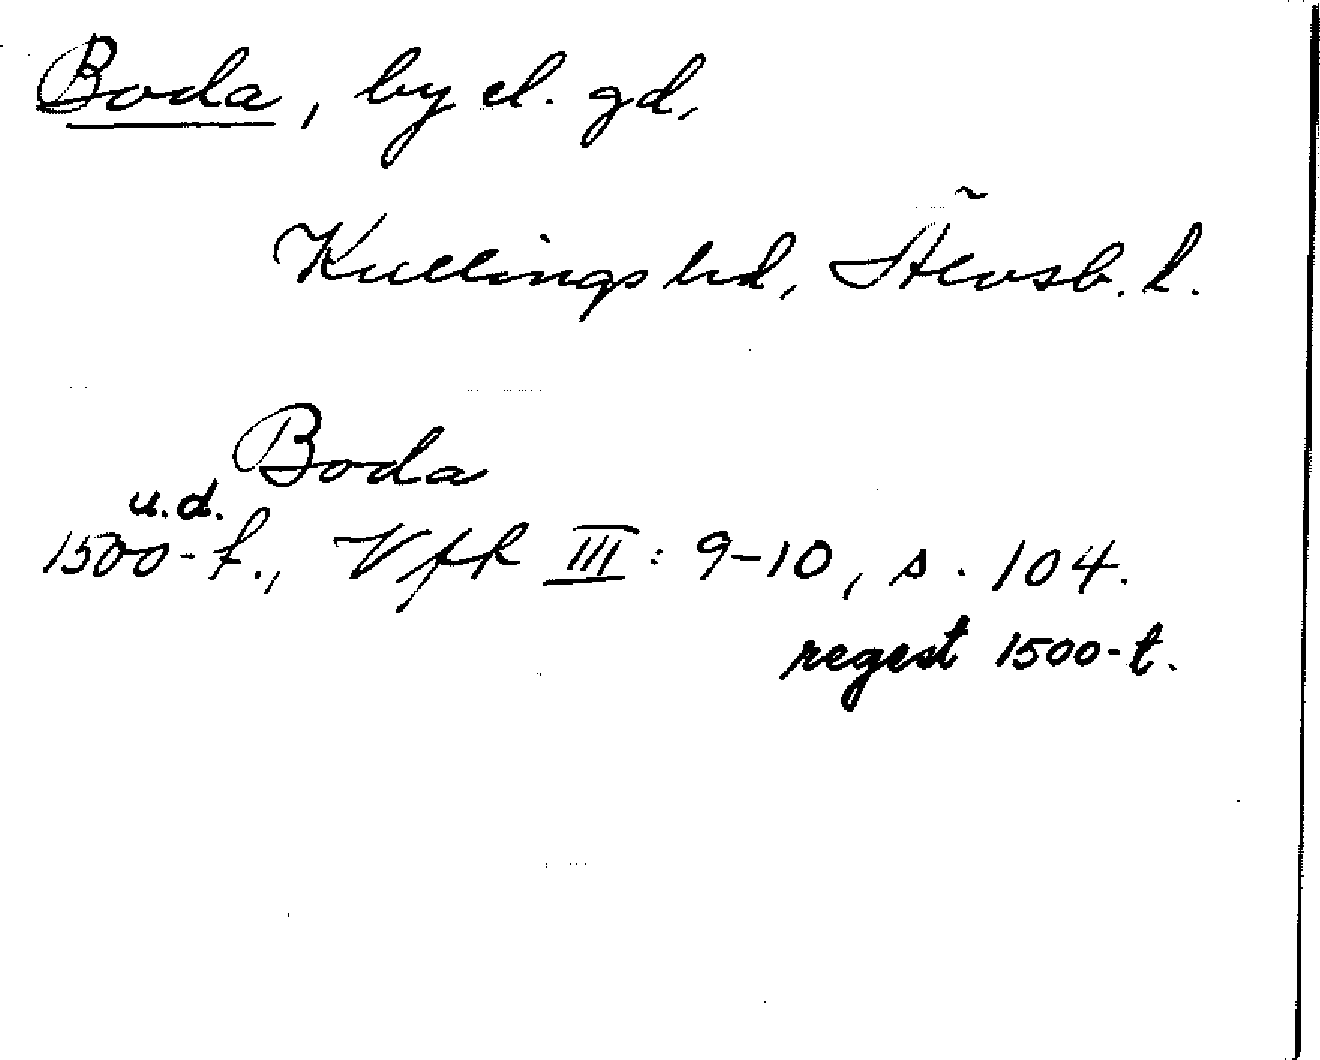 Boda, by el. gd,
Kullings hd, Älvsb. l.
Boda
u.d.
1500-t., VfR III: 9-10, s. 104.
regest 1500-t.